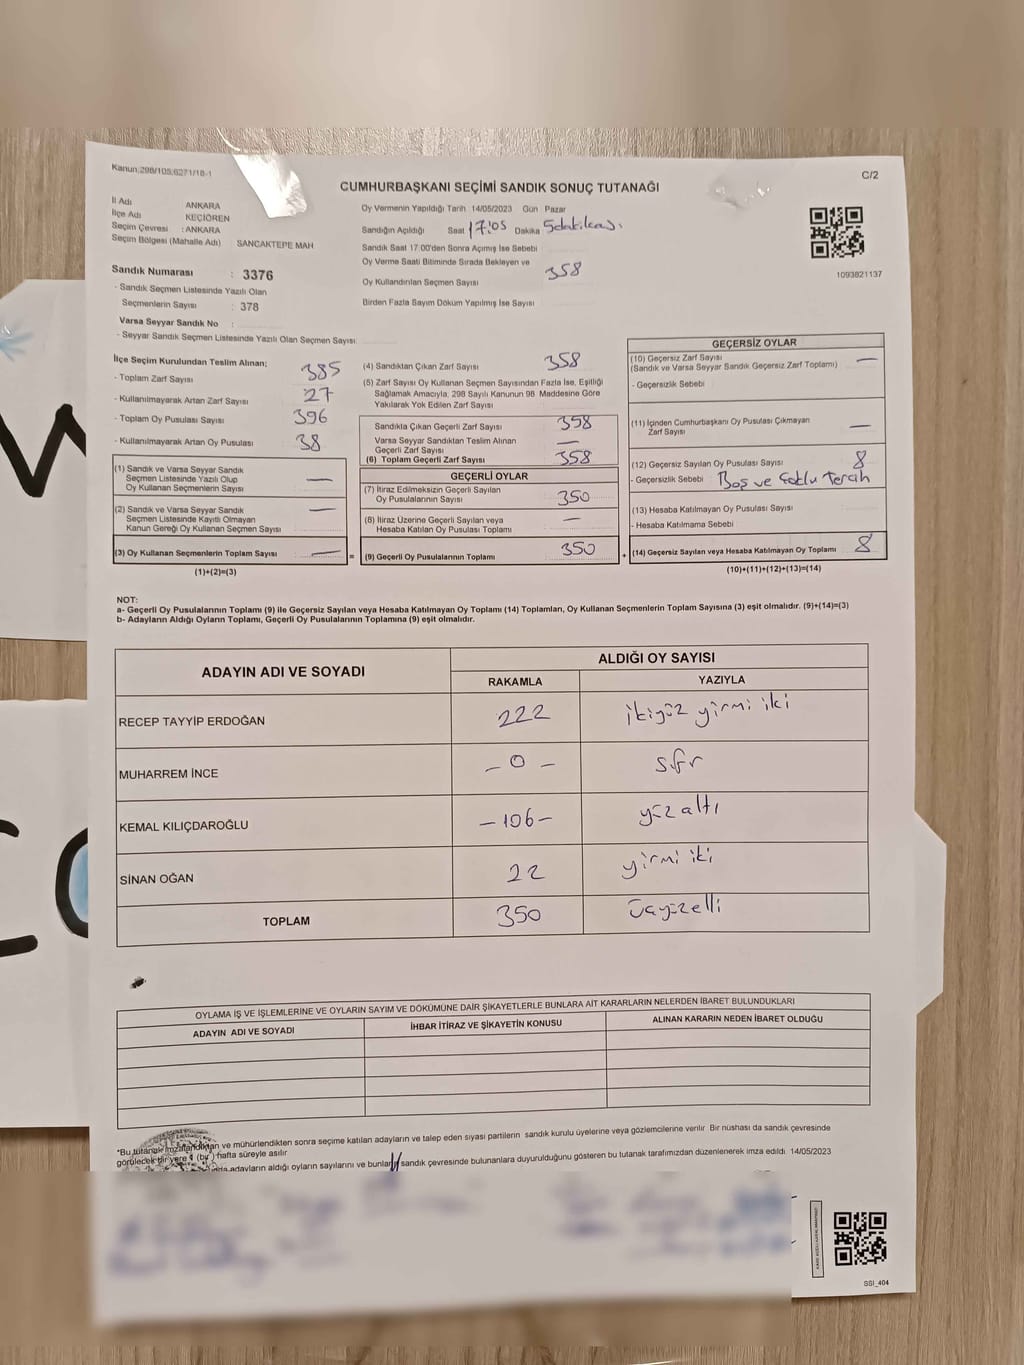 Kanun:298/105;6271/18-1
C/2
CUMHURBAŞKANI SEÇİMİ SANDIK SONUÇ TUTANAĞI
İl Adı ANKARA
İlçe Adı KEÇİÖREN
Seçim Çevresi : ANKARA
Seçim Bölgesi (Mahalle Adı) SANCAKTEPE MAH
Sandık Numarası : 3376
- Sandık Seçmen Listesinde Yazılı Olan
Seçmenlerin Sayısı : 378
Varsa Seyyar Sandık No :
- Seyyar Sandık Seçmen Listesinde Yazılı Olan Seçmen Sayısı:
Oy Vermenin Yapıldığı Tarih 14/05/2023 Gün Pazar
Sandığın Açıldığı Saat 17:05 Dakika
Sandık Saat 17:00'den Sonra Açımış Ise Sebebi
Oy Verme Saati Bitiminde Sırada Bekleyen ve
Oy Kullandırılan Seçmen Sayısı 358
Birden Fazla Sayım Döküm Yapılmış İse Sayısı
1093821137
İlçe Seçim Kurulundan Teslim Alınan;
- Toplam Zarf Sayısı 385
- Kullanılmayarak Artan Zarf Sayısı 27
- Toplam Oy Pusulası Sayısı 396
- Kullanılmayarak Artan Oy Pusulası 38
(1) Sandık ve Varsa Seyyar Sandık
Seçmen Listesinde Yazılı Olup
Oy Kullanan Seçmenlerin Sayısı —
(2) Sandık ve Varsa Seyyar Sandık
Seçmen Listesinde Kayıtlı Olmayan
Kanun Gereği Oy Kullanan Seçmen Sayısı —
(3) Oy Kullanan Seçmenlerin Toplam Sayısı — =
(1)+(2)=(3)
(4) Sandıktan Çıkan Zarf Sayısı 358
(5) Zarf Sayısı Oy Kullanan Seçmen Sayısından Fazla İse, Eşitliği
Sağlamak Amacıyla, 298 Sayılı Kanunun 98 Maddesine Göre
Yakılarak Yok Edilen Zarf Sayısı
Sandıkta Çıkan Geçerli Zarf Sayısı 358
Varsa Seyyar Sandıktan Teslim Alınan
Geçerli Zarf Sayısı —
(6) Toplam Geçerli Zarf Sayısı 358
GEÇERLİ OYLAR
(7) İtiraz Edilmeksizin Geçerli Sayılan
Oy Pusulalarının Sayısı 350
(8) İtiraz Üzerine Geçerli Sayılan veya
Hesaba Katılan Oy Pusulaları Toplamı —
(9) Geçerli Oy Pusulalarının Toplamı 350 +
GEÇERSİZ OYLAR
(10) Geçersiz Zarf Sayısı —
(Sandık ve Varsa Seyyar Sandık Geçersiz Zarf Toplamı)
- Geçersizlik Sebebi
(11) İçinden Cumhurbaşkanı Oy Pusulası Çıkmayan
Zarf Sayısı —
(12) Geçersiz Sayılan Oy Pusulası Sayısı 8
- Geçersizlik Sebebi Boş ve Çoklu Tercih
(13) Hesaba Katılmayan Oy Pusulası Sayısı
- Hesaba Katılmama Sebebi
(14) Geçersiz Sayılan veya Hesaba Katılmayan Oy Toplamı 8
(10)+(11)+(12)+(13)=(14)
NOT:
a- Geçerli Oy Pusulalarının Toplamı (9) ile Geçersiz Sayılan veya Hesaba Katılmayan Oy Toplamı (14) Toplamları, Oy Kullanan Seçmenlerin Toplam Sayısına (3) eşit olmalıdır. (9)+(14)=(3)
b- Adayların Aldığı Oyların Toplamı, Geçerli Oy Pusulalarının Toplamına (9) eşit olmalıdır.
ADAYIN ADI VE SOYADI ALDIĞI OY SAYISI
RAKAMLA YAZIYLA
RECEP TAYYİP ERDOĞAN 222 ikiyüz yirmi iki
MUHARREM İNCE – 0 – sıfır
KEMAL KILIÇDAROĞLU –106– yüz altı
SİNAN OĞAN 22 yirmi iki
TOPLAM 350 üçyüzelli
OYLAMA İŞ VE İŞLEMLERİNE VE OYLARIN SAYIM VE DÖKÜMÜNE DAİR ŞİKAYETLERLE BUNLARA AİT KARARLARIN NELERDEN İBARET BULUNDUKLARI
ADAYIN ADI VE SOYADI İHBAR İTİRAZ VE ŞİKAYETİN KONUSU ALINAN KARARIN NEDEN İBARET OLDUĞU
*Bu tutanak imzalandıktan ve mühürlendikten sonra seçime katılan adayların ve talep eden siyasi partilerin sandık kurulu üyelerine veya gözlemcilerine verilir Bir nüshası da sandık çevresinde
görülecek bir yere 1 (bir) hafta süreyle asılır
adayların aldığı oyların sayılarını ve bunların sandık çevresinde bulunanlara duyurulduğunu gösteren bu tutanak tarafımızdan düzenlenerek imza edildi 14/05/2023
SSI_404